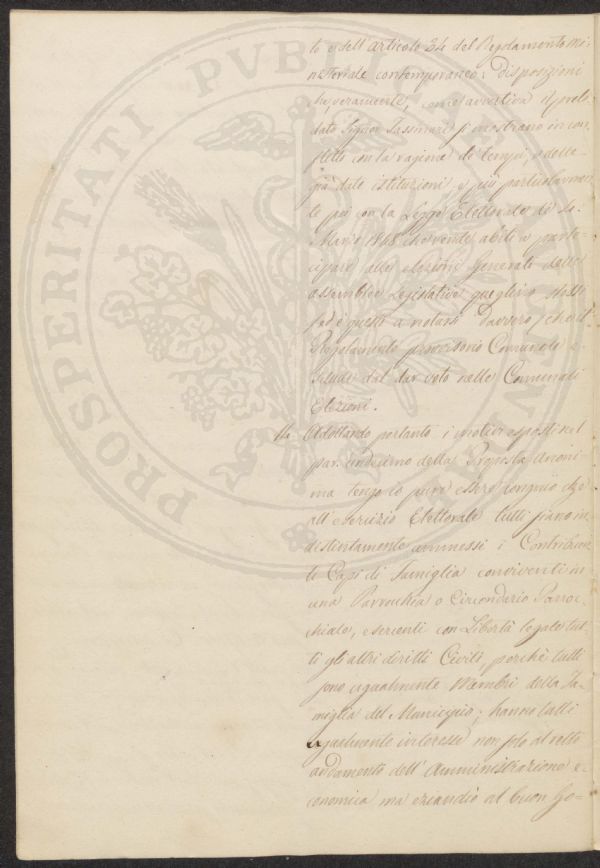 to e dell'articolo 24 del Regolamento Mi-
nisteriale contemporaneo: disposizioni
che, veramente, come avvertiva il prelo-
dato Signor Tassinari si mostrano in con-
flitto con la ragione de' tempi, e delle
già date istituzioni, e più particolarmen-
te poi con la Legge Elettorale
Marzo 1848 che rende abili a parte-
cipare alle elezioni Generali delle
assemblee Legislative quegli stessi
a notarsi davvero che il
Regolamento provvisorio Comunale e-
sclude dal dar voto nelle Comunali
Elezioni.
Adottando pertanto i motivi esposti nel
par. undecimo della Proposta Anoni-
ma tengo io pure essere congruo che
all'esercizio Elettorale tutti siano in-
distintamente ammessi i Contribuen-
ti Capi di Famiglia conviventi in
una Parrocchia o Circondario Parroc-
chiale, esercenti con Libertà legale tut-
ti gli altri diritti Civili, perchè tutti
sono ugualmente Membri della Fa-
miglia del Municipio; hanno tutti
ugualmente interesse non solo al retto
andamento dell'Amministrazione e-
conomica ma eziandio al buon Go-
PROSPERITATI PVBLICAE